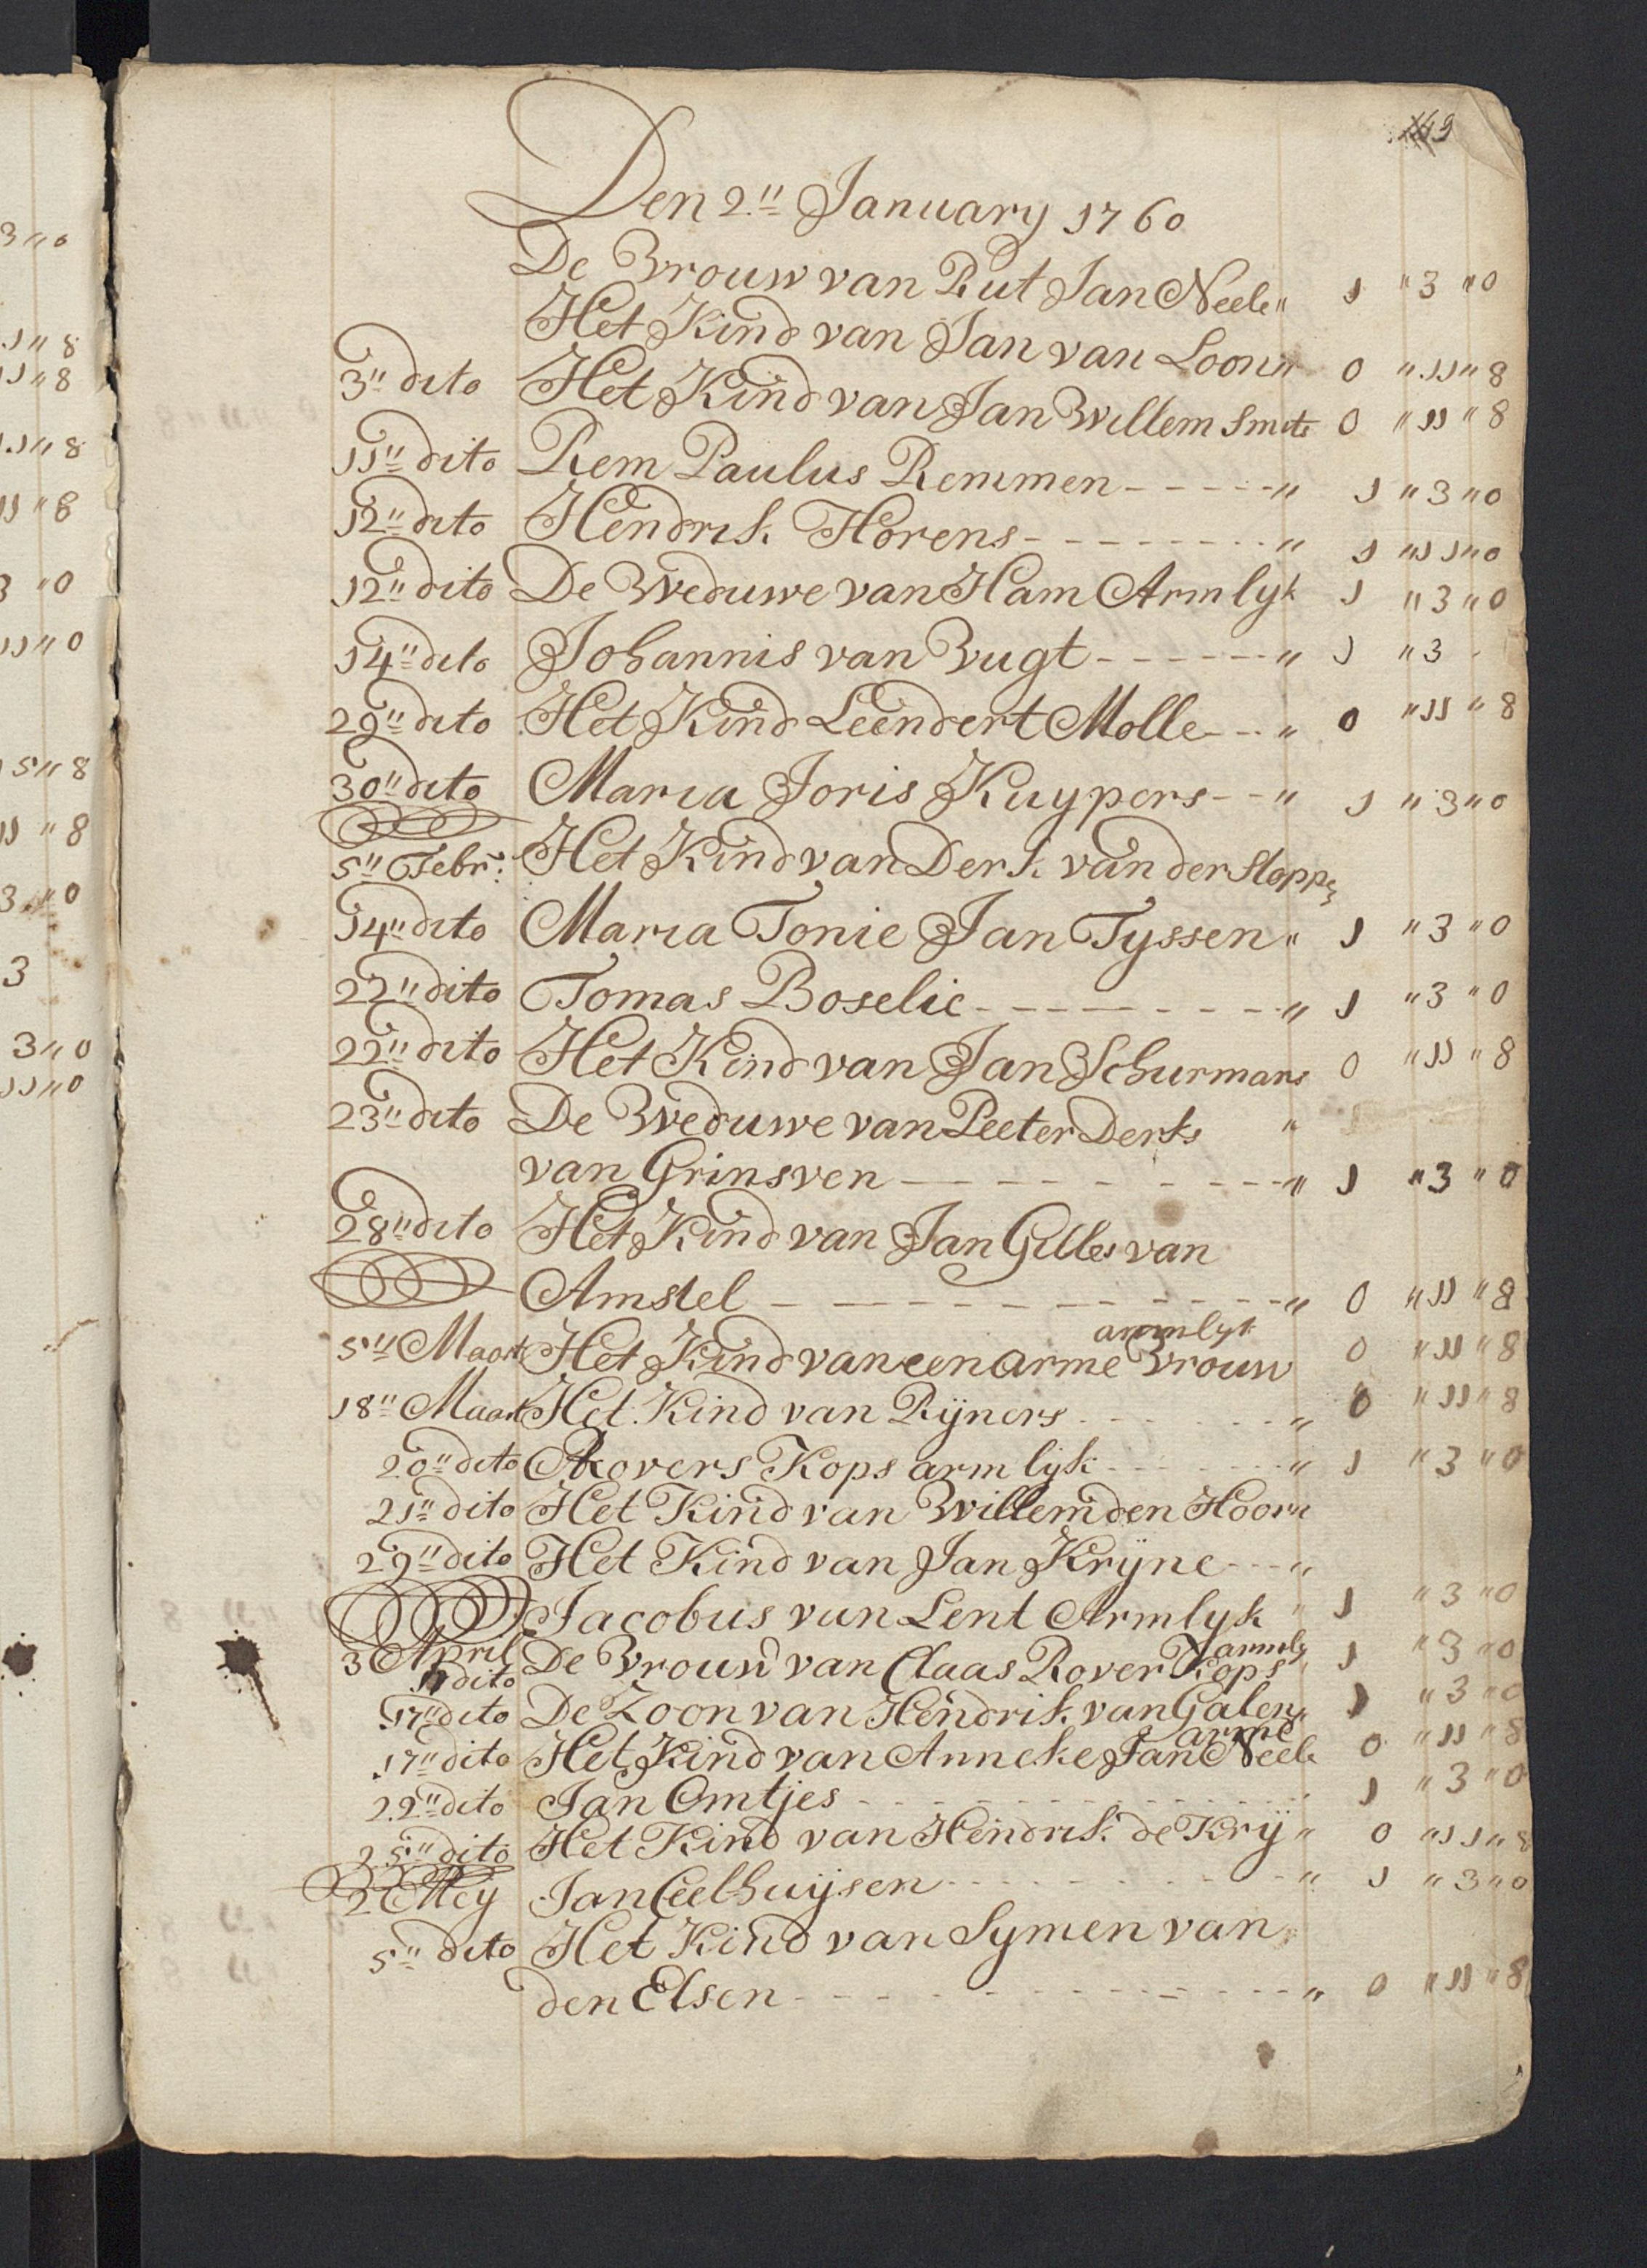 149
Den 2" January 1760
De Vrouw van Rut Jan Neele " 1 " 3 " 0
Het Kind van Jan van Loon " 0 " 11 " 8
3" dito Het Kind van Jan Willem Smits 0 " 11 " 8
11" dito Rem Paulus Remmen - - - - - " 1 " 3 " 0
12" dito Hendrik Florens - - - - - - - - " 1 " 11 " 0
12" dito De Weduwe van Ham Armlyk 1 " 3 " 0
14" dito Johannis van Vugt - - - - - - " 1 " 3 -
29" dito Het Kind Leendert Molle - - " 0 " 11 " 8
30" dito Maria Joris Kuypers - - " 1 " 3 " 0
5" Febr: Het Kind van Derk van der
14" dito Maria Tonie Jan Tyssen " 1 " 3 " 0
22" dito Tomas Boselie - - - - - - - - " 1 " 3 " 0
22" dito Het Kind van Jan Schurmans 0 " 11 " 8
23" dito De Weduwe van Peeter Derks "
van Grinsven - - - - - - - - " 1 " 3 " 0
28" dito Het Kind van Jan Gilles van
Amstel - - - - - - - - - - - - " 0 " 11 " 8
armlyk
5" Maart Het Kind van een arme Vrouw 0 " 11 " 8
18" Maart Het Kind van Rijners - - - - - - " 0 " 11 " 8
20" dito Rovers Kops armlyk - - - - - " 1 " 3 " 0
21" dito Het Kind van Willem den Hoorn
29" dito Het Kind van Jan Kryne - - - "
Jacobus van Lent Armlyk " 1 " 3 " 0
armly
3 April De Vrouw van Claas Rover Kops 1 " 3 " 0
11 dito
17" dito De Zoon van Hendrik van Galen " 1 " 3 " 0
arme
17" dito Het Kind van Anneke Jan Neele 0 " 11 " 8
22" dito Jan Omtjes - - - - - - - - - - 1 " 3 " 0
25" dito Het Kind van Hendrik de Kry " 0 " 11 " 8
2 Mey Jan Ceelhuijsen - - - - - - - - - " 1 " 3 " 0
5" dito Het Kind van Symen van
den Elsen - - - - - - - - - - - - " 0 " 11 " 8
3 " 0
1 " 8
11 " 8
11 " 8
11 " 8
3 " 0
11 " 0
15 " 8
11 " 8
3 " 0
3
3 " 0
11 " 0